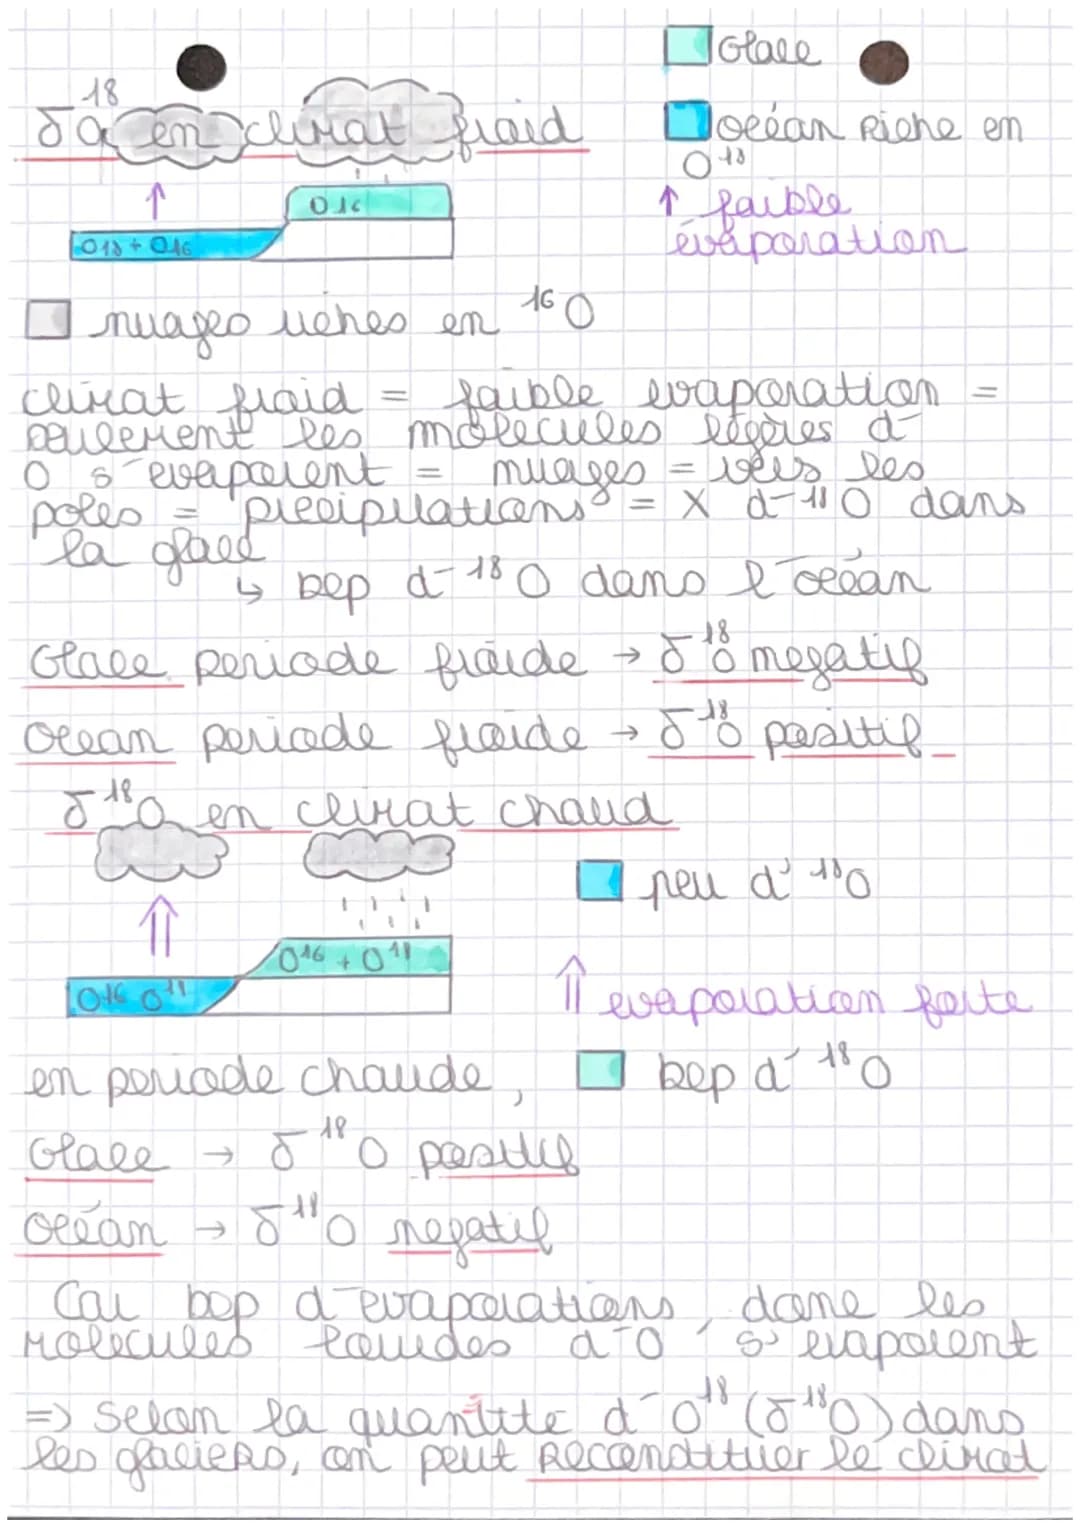 δ18O en climat froid
Glace
océan riche en
O18
↑ faible
évaporation
O16
O18 + O16
nuages riches en 16O
climat froid = faible evaporation =
seulement les molecules légères d'
O s'evaporent = nuages = vers les
poles = precipitations = X d'18O dans
la glace
↳ bcp d'18O dans l'océan
Glace periode froide → δ18O negatif
Ocean periode froide → δ18O positif
δ18O en climat chaud
peu d'18O
O16 + O18
O16 O18
⇑ evaporation forte
en periode chaude,
bcp d'18O
Glace → δ18O positif
Océan → δ18O negatif
Car bcp d'evaporations, donc les
molecules lourdes d'O s'evaporent
=> Selon la quantité d'O18 (δ18O) dans
les glaciers, on peut reconstituer le climat